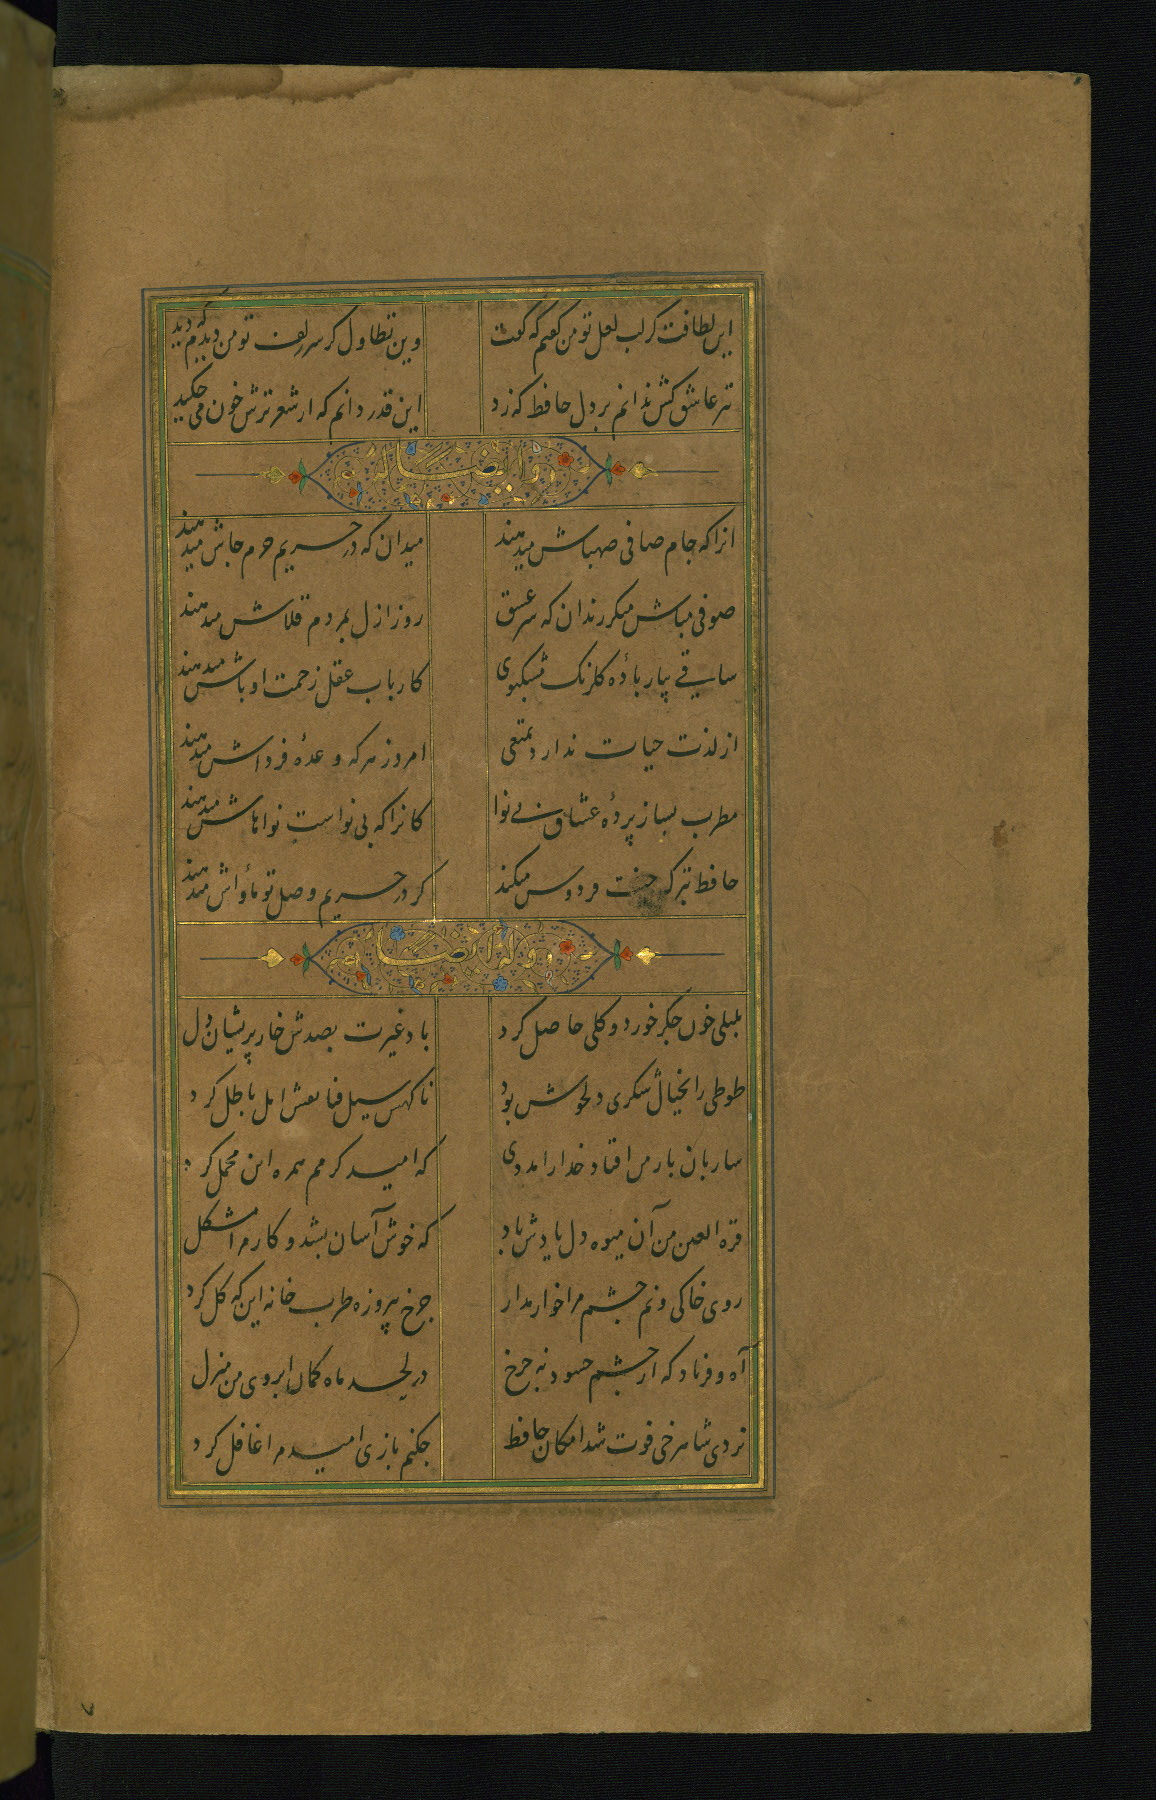 این لطافت کز لب لعل تو من گفتم که گفت وین تطاول کز سر زلف تو من دیدم که دید
تیر عاشق کش ندانم بر دل حافظ که زد این قدر دانم که از شعر ترش خون می چکید
وایضا له
انرا که جام صافی صهباش میدهند میدان که در حریم حرم جاش میدهند
صوفی مباش منکر رندان که سر عشق روز ازل بمردم قلاش میدهند
ساقی بیار بادۀ گلرنگ مشکبوی کارباب عقل زحمت اوباش میدهند
از لذت حیات ندارد تمتعی امروز هر که وعدۀ فرداش میدهند
مطرب بساز پردۀ عشاق بی نوا کانرا که بی نواست نواهاش میدهند
حافظ بترک جنت فردوس میکند گر در حریم وصل تو مأواش میدهند
وله ایضا
بلبلی خون جگر خورد و گلی حاصل کرد باد غیرت بصدش خار پریشان دل
طوطی را بخیال شکری دلخوش بود ناگهش سیل فنا نقش امل باطل کرد
ساربان بار من افتاد خدا را مددی که امید کرمم همره این محمل کرد
قرة العین من آن میوه دل یادش باد که خوش آسان بشد و کار مرا مشکل
روی خاکی و نم چشم مرا خوار مدار چرخ پیروزه طرب خانه ازین که گل کرد
آه و فریاد که از چشم حسود مه چرخ در لحد ماه کمان ابروی من منزل
نزدی شاه رخی فوت شد امکان حافظ چکنم بازی امید مرا غافل کرد